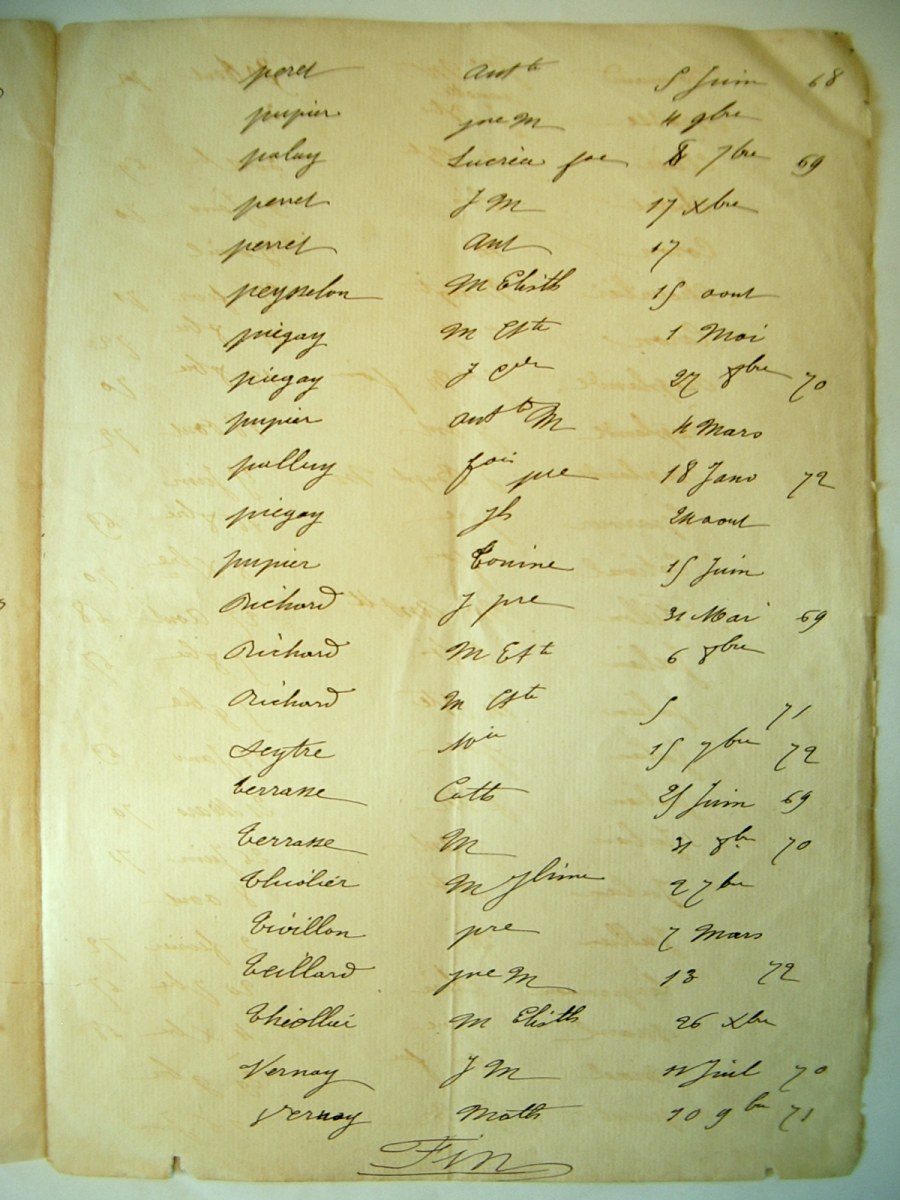 peret antte 5 Juin 68
pupier jne M 4 9bre
palay Lucrèce foe 8 7bre 69
perret J M 17 xbre
perret Ant 17
peyselon M Elisth 15 aout
piegay M Este 1 Mai
piegay J 27 8bre 70
pupier antte M 4 Mars
palluy foise pre 18 Janv 72
piegay jh 24 aout
pupier Tonine 15 Juin
Richard J pre 31 Mai 69
Richard M Este 6 8bre
Richard M Cste 5 71
Seytre 15 7bre 72
terrasse Cath 25 Juin 69
terrasse M 31 8br 70
thiolier M jhine 2 7bre
tivillon pre 7 Mars
teillard jne M 13 72
thiollier M Elisth 26 xbre
Vernay J M 11 Juil 70
Vernay Math 10 9bre 71
Fin